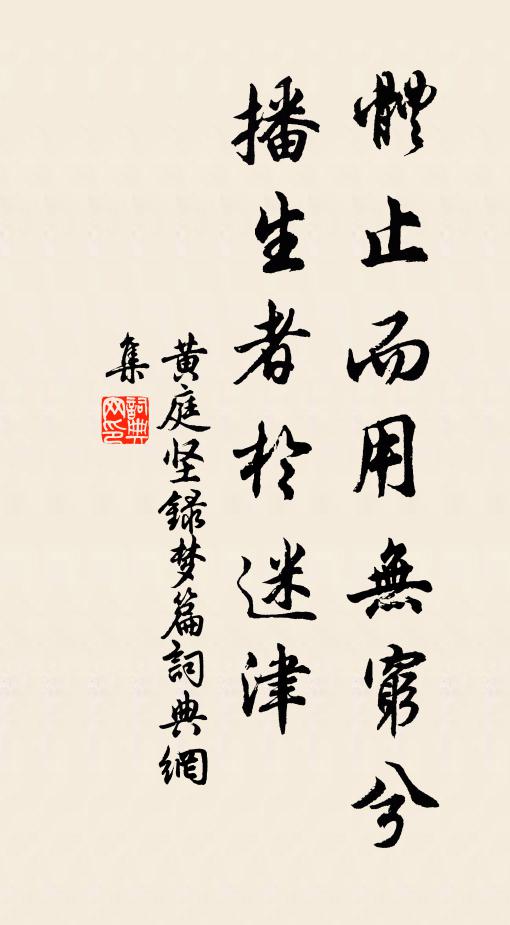 體止而用無窮兮
播生者於迷津
黄庭坚錄梦篇詞典網
集
詞典
网印